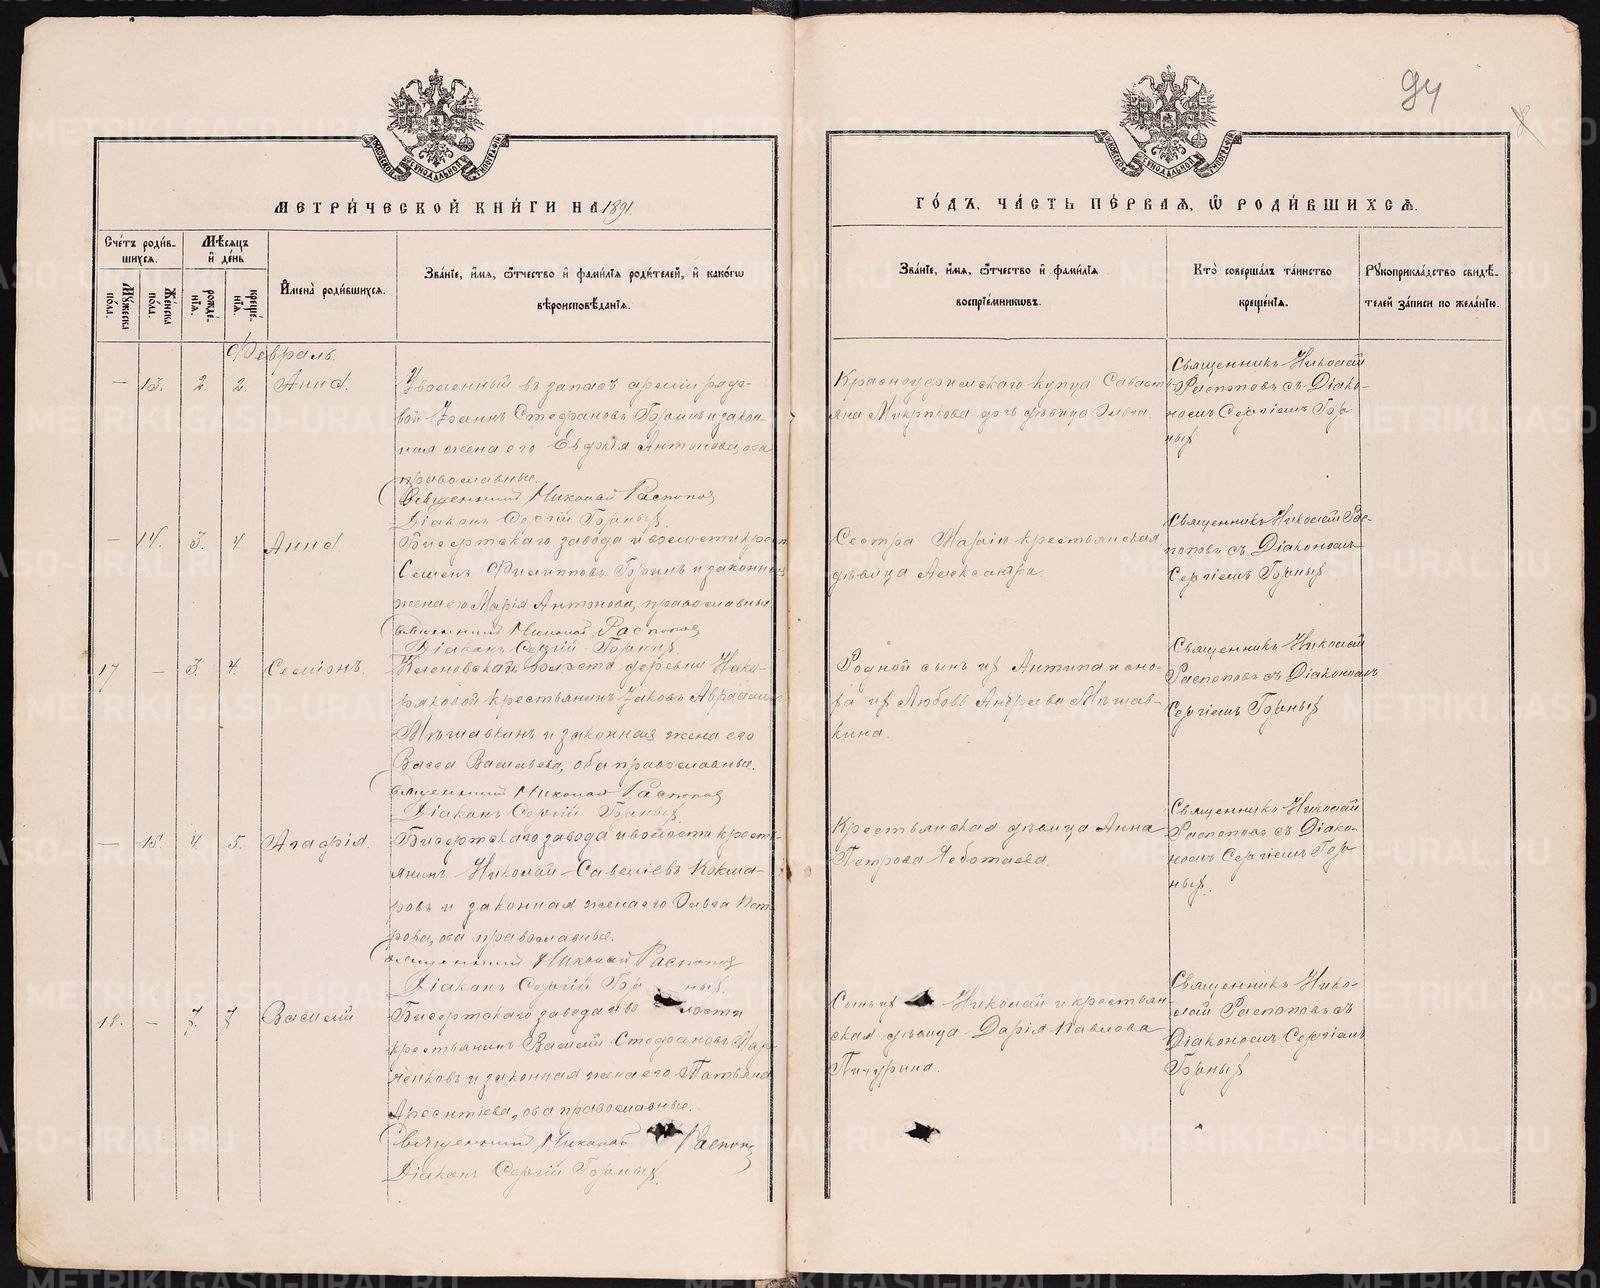 94
МЕТРИ́ЧЕСКОЙ КНИ́ГИ НА 1891.
ГО́ДЪ, ЧА́СТЬ ПЕ́РВАЯ, Ѿ РОДИ́ВШИХСЯ.
Сче́тъ роди́в-
шихся.
Мѣ́сяцъ
и де́нь
Мꙋжеска по́ла.
Же́нска по́ла.
рожде́-
нїѧ.
креще́-
нїѧ.
И҆мена̀ роди́вшихся.
Зва́нїе, и҆́мѧ, ѻ҆́тчество и҆ фами́лїѧ роди́телей, и҆ како́гѡ
вѣроисповѣ́данїѧ.
Зва́нїе, и҆́мѧ, ѻ҆́тчество и҆ фами́лїѧ
воспрїе́мникѡвъ.
Кто̀ соверша́лъ та́инство
креще́нїѧ.
Рꙋкоприкла́дство свидѣ́-
телей за́писи по жела́нїю.
Февраль.
— 13. 2. 2. Анна.
Уволенный въ запасъ арміи рядо-
вой Іоаннъ Стефановъ Горинъ и закон-
ная жена его Евдокія Антонова, оба
православные.
Священникъ Николай Распопов
Діаконъ Сергій Горныхъ.
Красноуфимскаго купца Севасть-
яна дочь дѣвица Ольга.
Священникъ Николай
Распоповъ съ Діако-
номъ Сергіемъ Гор-
ныхъ
— 14. 3. 4. Анна
Бисертскаго завода и волости крест
Семенъ Филипповъ Горинъ и законная
жена его Марія Антонова, православные
Священникъ Николай Распопов
Діаконъ Сергій Горныхъ.
Сестра Марію крестьянская
дѣвица Александра.
Священникъ Николай Рас-
поповъ съ Діакономъ
Сергіемъ Горныхъ
17 — 3. 4. Семіонъ.
Кленовской волости деревни
крестьянинъ Іаковъ Авраамовъ
Мѣшавкинъ и законная жена его
Васса Васильева, оба православные.
Священникъ Николай Распопов
Діаконъ Сергій Горныхъ.
Родной сынъ их Антипа и сно-
ха их Любовь Андреева Мѣшав-
кина.
Священникъ Николай
Распоповъ съ Діакономъ
Сергіемъ Горныхъ
— 15. 4. 5. Агафія.
Бисертскаго завода и волости кресть-
янинъ Николай Савеліевъ Кокша-
ровъ и законная жена его Ольга Пет-
рова, оба православные.
Священникъ Николай Распопов
Діаконъ Сергій Горныхъ.
Крестьянская дѣвица Анна
Петрова Чеботаева
Священникъ Николай
Распоповъ съ Діако-
номъ Сергіемъ Гор-
ныхъ.
18. — 7. 7. Василій
Бисертскаго завода и волости
крестьянинъ Василій Стефановъ
и законная жена его Татьяна
Арсентіева, оба православные.
Священникъ Николай Распопов
Діаконъ Сергій Горныхъ.
Сынъ их Николай и крестьян-
ская дѣвица Дарія Павлова
Пичурина.
Священникъ Нико-
лай Распоповъ съ
Діакономъ Сергіемъ
Горныхъ
METRIKI.GASO-URAL.RU